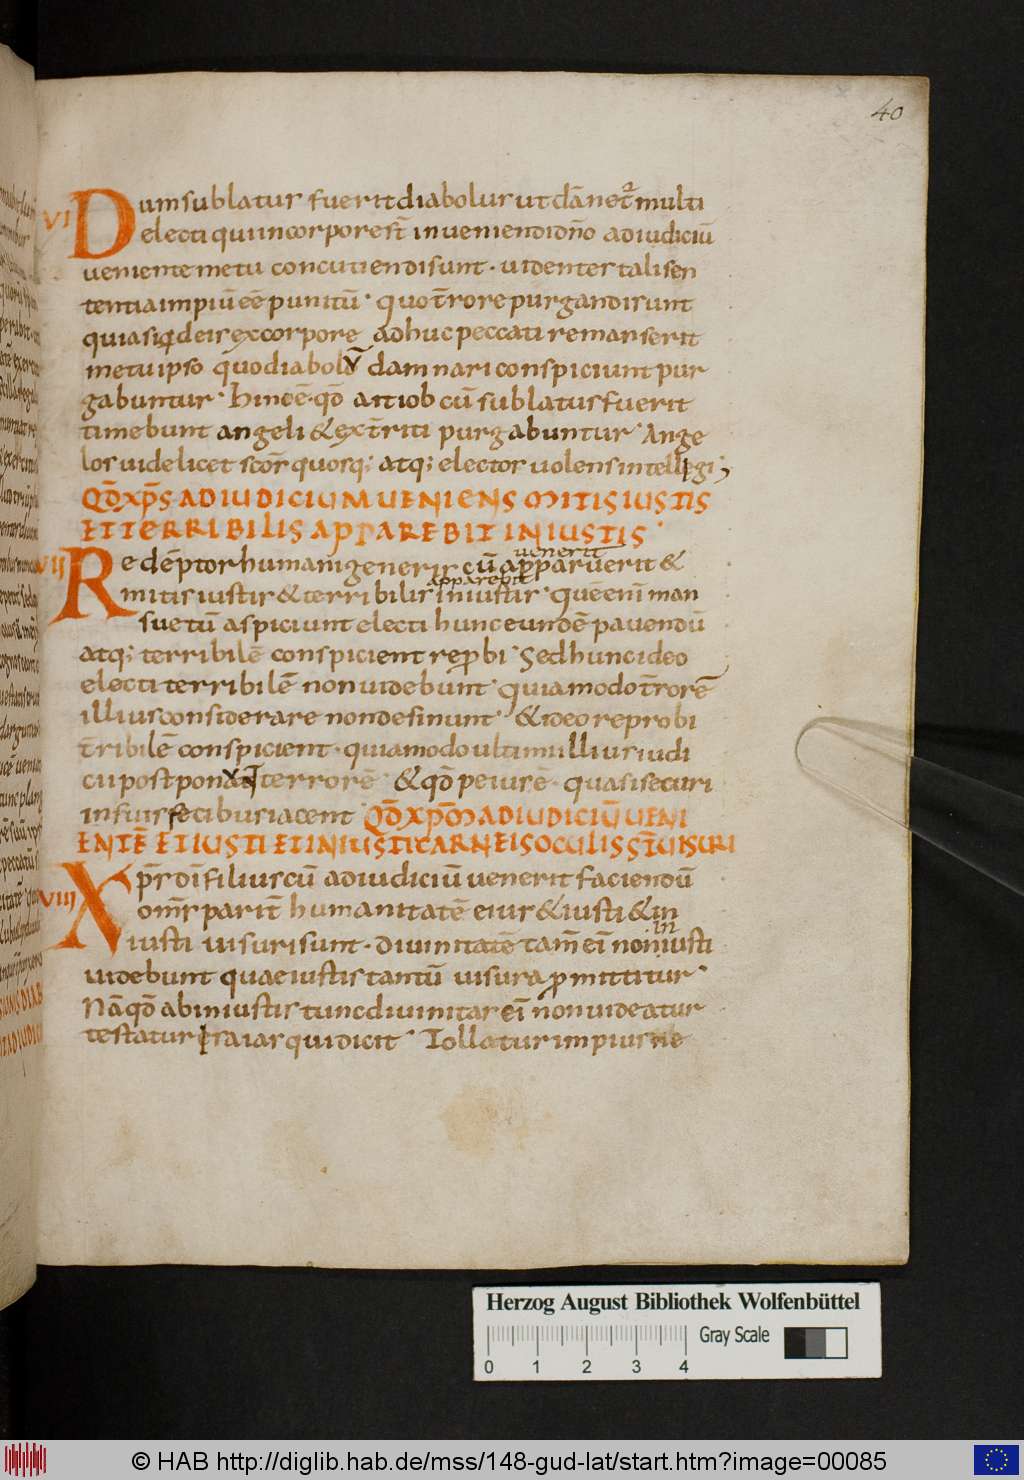 40
VI Dum sublatus fuerit diabolus ut dānet᷑ multi
electi qui in corpore st̄ inueniendi dn̄o ad iudiciū
ueniente metu concutiendi sunt · uidentes tali sen
tentia impiū eē punitū · quo t̄rore purgandi sunt
quia siqd eis ex corpore adhuc peccati remanserit
metu ipso quo diabolū damnari conspiciunt pur
gabuntur · hinc ē · qd̄ ait iob cū sublatus fuerit
timebunt angeli & ext̄riti purgabuntur · Ange
los uidelicet scōs quosq; atq; electos uolens intellegi;
QD̄ XPS̄ AD IUDICIUM UENIENS MITIS IUSTIS
ET TERRIBILIS APPAREBIT INIUSTIS ·
VII Redēptor humani generis cū apparuerit &
uenerit
mitis iustis & terribilis iniustis · Quē enī man
apparebit
suetū aspiciunt electi hunc eundē pauendū
atq; terribilē conspicient reprobi · Sed hunc ideo
electi terribilē non uidebunt · quia modo t̄rorē
illius considerare non desinunt · & ideo reprobi
t̄ribilē conspicient · quia modo ultimi illius iudi
cii postpon terrorē · & qd̄ peius ē · quasi securi
in suis fecibus iacent · QD̄ XPM̄ AD IUDICIŪ UENI
ENTĒ ET IUSTI ET INIUSTI CARNEIS OCULIS ST̄ UISURI
VIII Xps̄ dī filius cū ad iudiciū uenerit faciendū
om̄s parit̄ humanitatē eius & iusti & in
iusti uisuri sunt · diuinitatē tam̄ eī non iusti
in
uidebunt quae iustis tantū uisura promittitur ·
Nā qd̄ ab iniustis tunc diuinitas eī non uideatur
testatur Isaias qui dicit · Tollatur impius ne
Herzog August Bibliothek Wolfenbüttel
0 1 2 3 4 Gray Scale
© HAB http://diglib.hab.de/mss/148-gud-lat/start.htm?image=00085